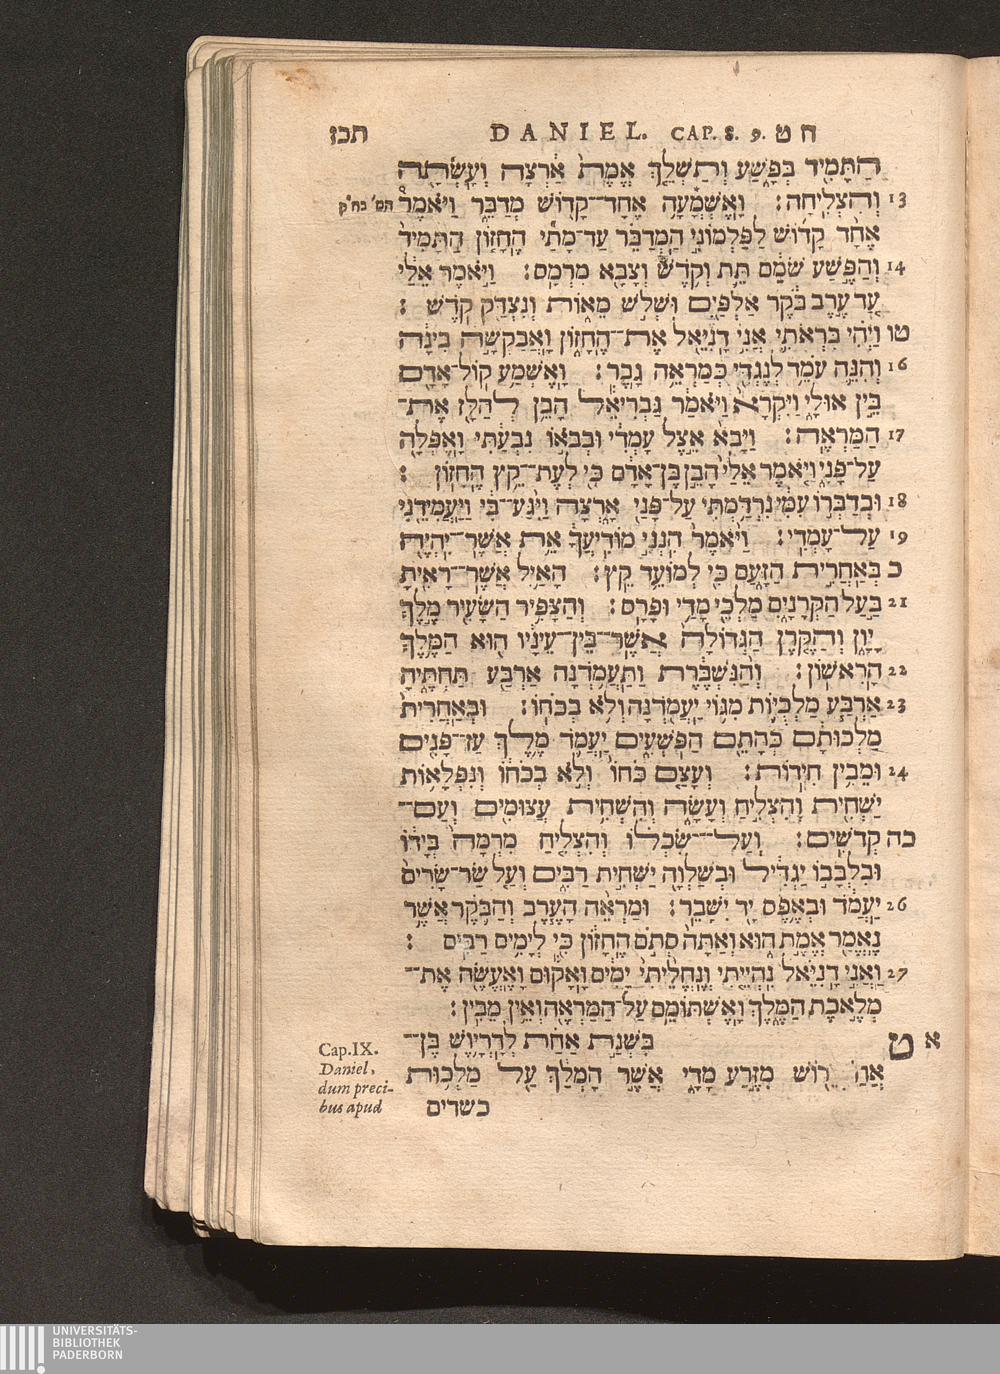 תכז DANIEL. CAP. 8. 9. ח ט
הַתָּמִיד בְּפָשַׁע וְתַשְׁלֵךְ אֱמֶת אַרְצָה וְעָשְׂתָה
13 וְהִצְלִיחָה : וָאֶשְׁמְעָה אֶחָד־קָדוֹשׁ מְדַבֵּר וַיֹּאמֶר
אֶחָד קָדוֹשׁ לַפַּלְמוֹנִי הַמְדַבֵּר עַד־מָתַי הֶחָזוֹן הַתָּמִיד
14 וְהַפֶּשַׁע שֹׁמֵם תֵּת וְקֹדֶשׁ וְצָבָא מִרְמָס : וַיֹּאמֶר אֵלַי
עַד עֶרֶב בֹּקֶר אַלְפַּיִם וּשְׁלֹשׁ מֵאוֹת וְנִצְדַּק קֹדֶשׁ :
טו וַיְהִי בִּרְאֹתִי אֲנִי דָנִיֵּאל אֶת־הֶחָזוֹן וָאֲבַקְשָׁה בִינָה
16 וְהִנֵּה עֹמֵד לְנֶגְדִּי כְּמַרְאֵה גָבֶר : וָאֶשְׁמַע קוֹל־אָדָם
בֵּין אוּלָי וַיִּקְרָא וַיֹּאמַר גַּבְרִיאֵל הָבֵן לְהַלָּז אֶת־
17 הַמַּרְאֶה : וַיָּבֹא אֵצֶל עָמְדִי וּבְבֹאוֹ נִבְעַתִּי וָאֶפְּלָה
עַל־פָּנָי וַיֹּאמֶר אֵלַי הָבֵן בֶּן־אָדָם כִּי לְעֶת־קֵץ הֶחָזוֹן :
18 וּבְדַבְּרוֹ עִמִּי נִרְדַּמְתִּי עַל־פָּנַי אָרְצָה וַיִּגַּע־בִּי וַיַּעֲמִידֵנִי
19 עַל־עָמְדִי : וַיֹּאמֶר הִנְנִי מוֹדִיעֲךָ אֵת אֲשֶׁר־יִהְיֶה
כ בְּאַחֲרִית הַזָּעַם כִּי לְמוֹעֵד קֵץ : הָאַיִל אֲשֶׁר־רָאִיתָ
21 בַּעַל הַקְּרָנָיִם מַלְכֵי מָדַי וּפָרָס : וְהַצָּפִיר הַשָּׂעִיר מֶלֶךְ
יָוָן וְהַקֶּרֶן הַגְּדוֹלָה אֲשֶׁר־בֵּין־עֵינָיו הוּא הַמֶּלֶךְ
22 הָרִאשׁוֹן : וְהַנִּשְׁבֶּרֶת וַתַּעֲמֹדְנָה אַרְבַּע תַּחְתֶּיהָ
23 אַרְבַּע מַלְכֻיוֹת מִגּוֹי יַעֲמֹדְנָה וְלֹא בְכֹחוֹ : וּבְאַחֲרִית
מַלְכוּתָם כְּהָתֵם הַפֹּשְׁעִים יַעֲמֹד מֶלֶךְ עַז־פָּנִים
24 וּמֵבִין חִידוֹת : וְעָצַם כֹּחוֹ וְלֹא בְכֹחוֹ וְנִפְלָאוֹת
יַשְׁחִית וְהִצְלִיחַ וְעָשָׂה וְהִשְׁחִית עֲצוּמִים וְעַם־
כה קְדֹשִׁים : וְעַל־שִׂכְלוֹ וְהִצְלִיחַ מִרְמָה בְּיָדוֹ
וּבִלְבָבוֹ יַגְדִּיל וּבְשַׁלְוָה יַשְׁחִית רַבִּים וְעַל שַׂר־שָׂרִים
26 יַעֲמֹד וּבְאֶפֶס יָד יִשָּׁבֵר : וּמַרְאֵה הָעֶרֶב וְהַבֹּקֶר אֲשֶׁר
נֶאֱמַר אֱמֶת הוּא וְאַתָּה סְתֹם הֶחָזוֹן כִּי לְיָמִים רַבִּים :
27 וַאֲנִי דָנִיֵּאל נִהְיֵיתִי וְנֶחֱלֵיתִי יָמִים וָאָקוּם וָאֶעֱשֶׂה אֶת־
מְלֶאכֶת הַמֶּלֶךְ וָאֶשְׁתּוֹמֵם עַל־הַמַּרְאֶה וְאֵין מֵבִין :
א ט בִּשְׁנַת אַחַת לְדָרְיָוֶשׁ בֶּן־
אֲחַשְׁוֵרוֹשׁ מִזֶּרַע מָדָי אֲשֶׁר הָמְלַךְ עַל מַלְכוּת
כשדים
Cap.IX.
Daniel,
dum preci-
bus apud
UNIVERSITÄTS-
BIBLIOTHEK
PADERBORN